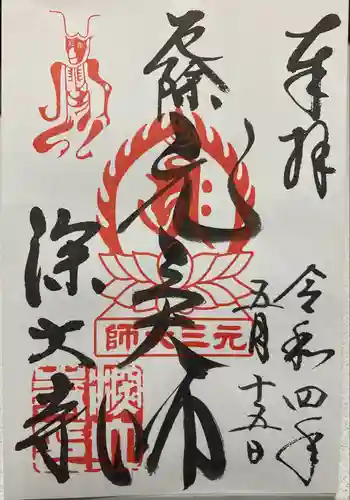 奉拝
令和四年
五月十五日
元三大師
元三大師
深大寺